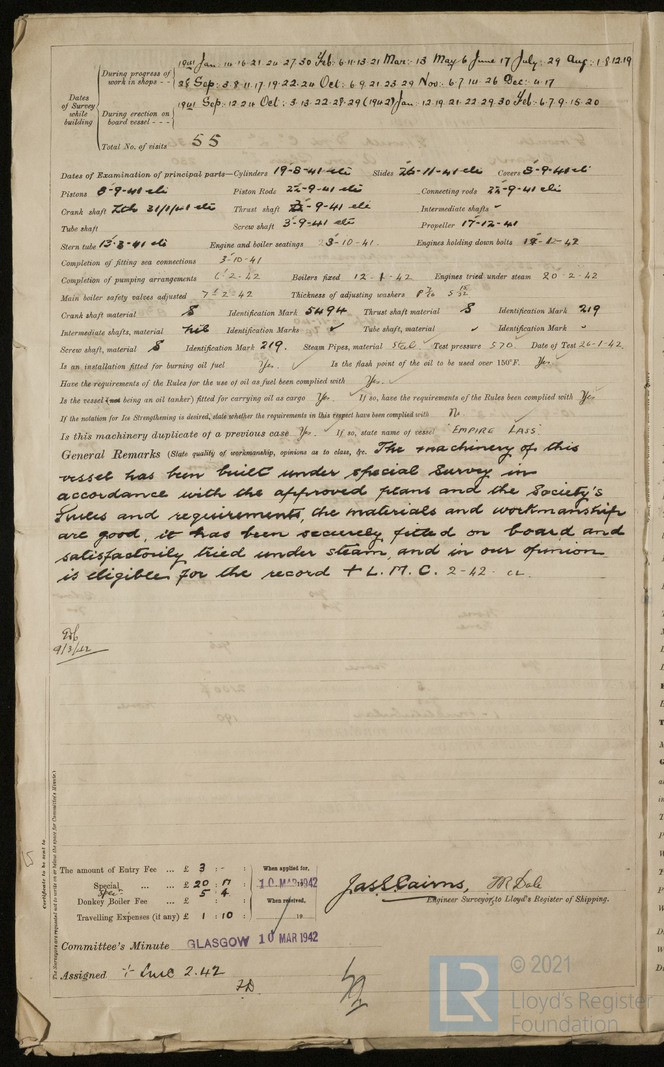 Dates of Survey while building
During progress of work in shops - - 1941 Jan: 14·16·21·24·27·30 Feb: 6·11·13·21 Mar: 13 May 6 June 17 July: 29 Aug: 1·8·12·19
28 Sep: 3·8·11·17·19·22·24 Oct: 6·9·21·23·29 Nov: 6·7·14·26 Dec: 4·17
During erection on board vessel - - - 1941 Sep: 12·24 Oct: 3·13·22·28·29 (1942) Jan: 12·19·21·22·29·30 Feb: 6·7·9·15·20
Total No. of visits 55
Dates of Examination of principal parts—Cylinders 19-8-41 Slides 26-11-41 Covers 8-9-41
Pistons 8-9-41 Piston Rods 22-9-41 Connecting rods 22-9-41
Crank shaft 31/1/41 Thrust shaft -9-41 Intermediate shafts
Tube shaft Screw shaft 3-9-41 Propeller 17-12-41
Stern tube 13-3-41 Engine and boiler seatings 23-10-41 Engines holding down bolts 19-1-42
Completion of fitting sea connections 3-10-41
Completion of pumping arrangements 6-2-42 Boilers fixed 12-1-42 Engines tried under steam 20-2-42
Main boiler safety valves adjusted 7-2-42 Thickness of adjusting washers
Crank shaft material S Identification Mark 5494 Thrust shaft material S Identification Mark 219
Intermediate shafts, material nil Identification Marks ✓ Tube shaft, material ✓ Identification Mark ✓
Screw shaft, material S Identification Mark 219. Steam Pipes, material Steel Test pressure 570 Date of Test 26-1-42
Is an installation fitted for burning oil fuel Yes. Is the flash point of the oil to be used over 150°F. Yes
Have the requirements of the Rules for the use of oil as fuel been complied with Yes.
Is the vessel (not being an oil tanker) fitted for carrying oil as cargo Yes If so, have the requirements of the Rules been complied with Yes
If the notation for Ice Strengthening is desired, state whether the requirements in this respect have been complied with No
Is this machinery duplicate of a previous case Yes. If so, state name of vessel "EMPIRE LASS"
General Remarks (State quality of workmanship, opinions as to class, &c. The machinery of this
vessel has been built under special survey in
accordance with the approved plans and the Society's
Rules and requirements, the materials and workmanship
are good, it has been securely fitted on board and
satisfactorily tried under steam, and in our opinion
is eligible for the record + L.M.C. 2-42. CL.
9/3/42
Certificate to be sent to
The Surveyors are requested not to write on or below the space for Committee's Minute.
The amount of Entry Fee ... £ 3 : - : When applied for,
Special ... ... £ 20 : 17 : 10 MAR 1942
Spec:
Donkey Boiler Fee ... £ 5 : 4 : When received,
Travelling Expenses (if any) £ 1 : 10 : 19
Jas S Cairns, J R Dale
Engineer Surveyor to Lloyd's Register of Shipping.
Committee's Minute GLASGOW 10 MAR 1942
Assigned + LMC 2.42
LR
© 2021
Lloyd's Register
Foundation